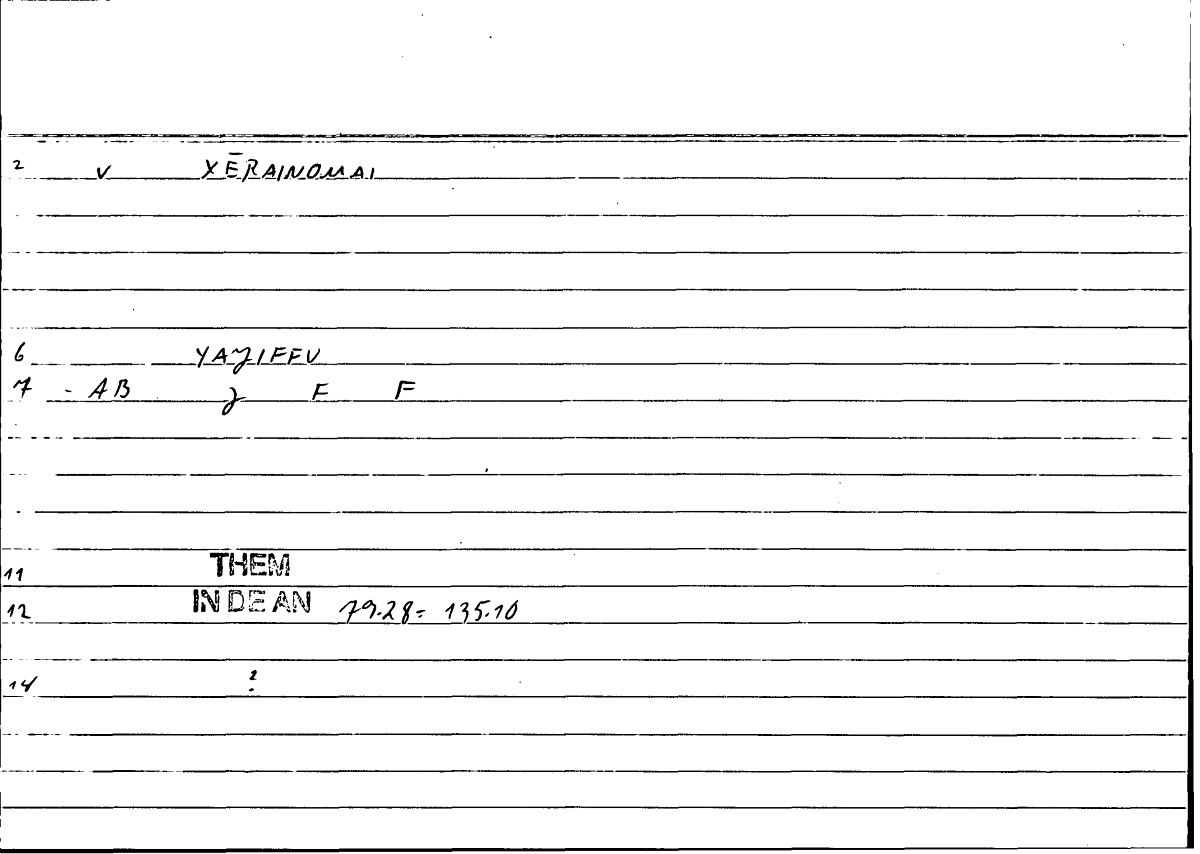 2 v XĒRAINOMAI
6 YAʒIFFU
7 - AB ʒ F F
11 THEM
12 IN DE AN 79.28 = 135.10
14 ?